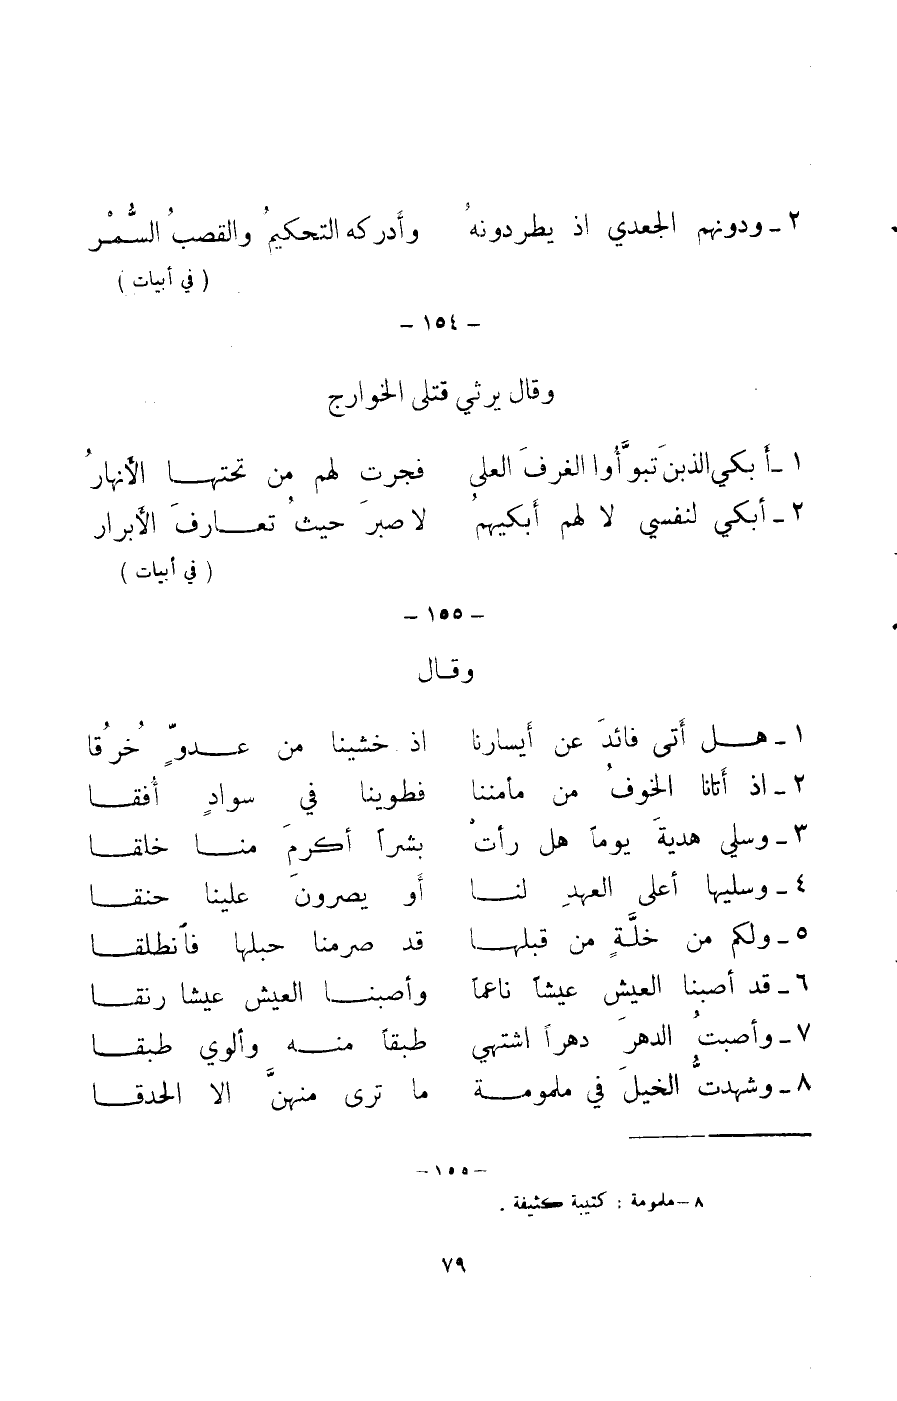 ٢ - ودونهم الجعدي اذ يطردونهُ    وأدركه التحكيمُ والقصبُ السُّمْرُ
( في أبيات )
- ١٥٤ -
وقال يرثي قتلى الخوارج
١ - أبكي الذين تبوَّأوا الغرفَ العلى    فجرت لهم من تحتهـا الأنهارُ
٢ - أبكي لنفسي لا لهم أبكيهمُ    لا صبرَ حيثُ تعـارفَ الأبرار
( في أبيات )
- ١٥٥ -
وقـال
١ - هـل أتى فائدَ عن أيسارنا    اذ خشينا من عـدوٍّ خُرُقا
٢ - اذ أتانا الخوفُ من مأمننا    فطوينا في سوادٍ أُفقـا
٣ - وسلي هديةَ يوماً هل رأتْ    بشراً أكرمَ منـا خلقـا
٤ - وسليها أعلى العهدِ لنـا    أو يصرونَ علينا حنقـا
٥ - ولكم من خلَّةٍ من قبلهـا    قد صرمنا حبلها فأنطلقـا
٦ - قد أصبنا العيش عيشاً ناعماً    وأصبنـا العيش عيشا رنقـا
٧ - وأصبتُ الدهرَ دهراً اشتهي    طبقاً منـه وألوي طبقـا
٨ - وشهدتُّ الخيلَ في ملمومـة    ما ترى منهنَّ الا الحدقـا
- ١٥٥ -
٨ - ملمومة : كتيبة كثيفة .
٧٩